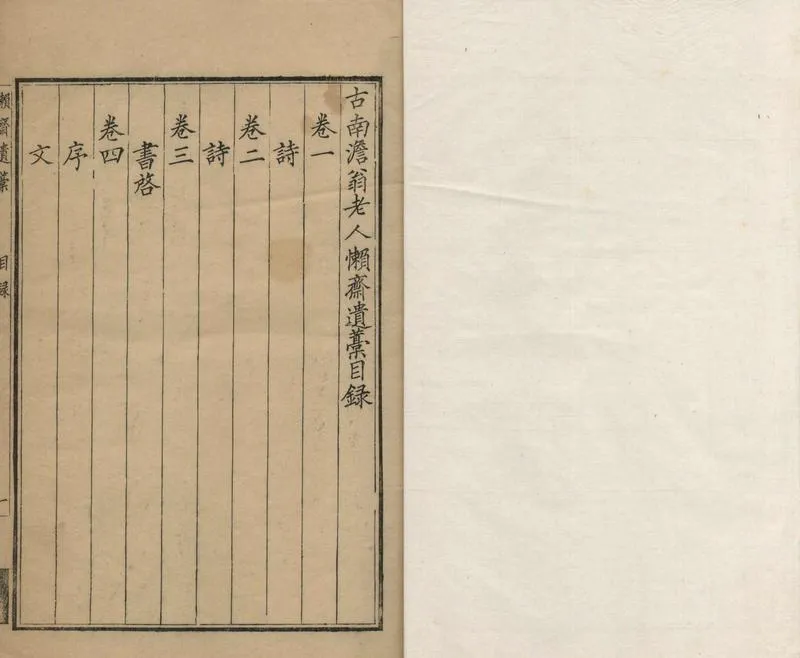 古南澹翁老人懶齋遺藁目録
卷一
詩
卷二
詩
卷三
書啓
卷四
序
文
懶齋遺藁 目録 一